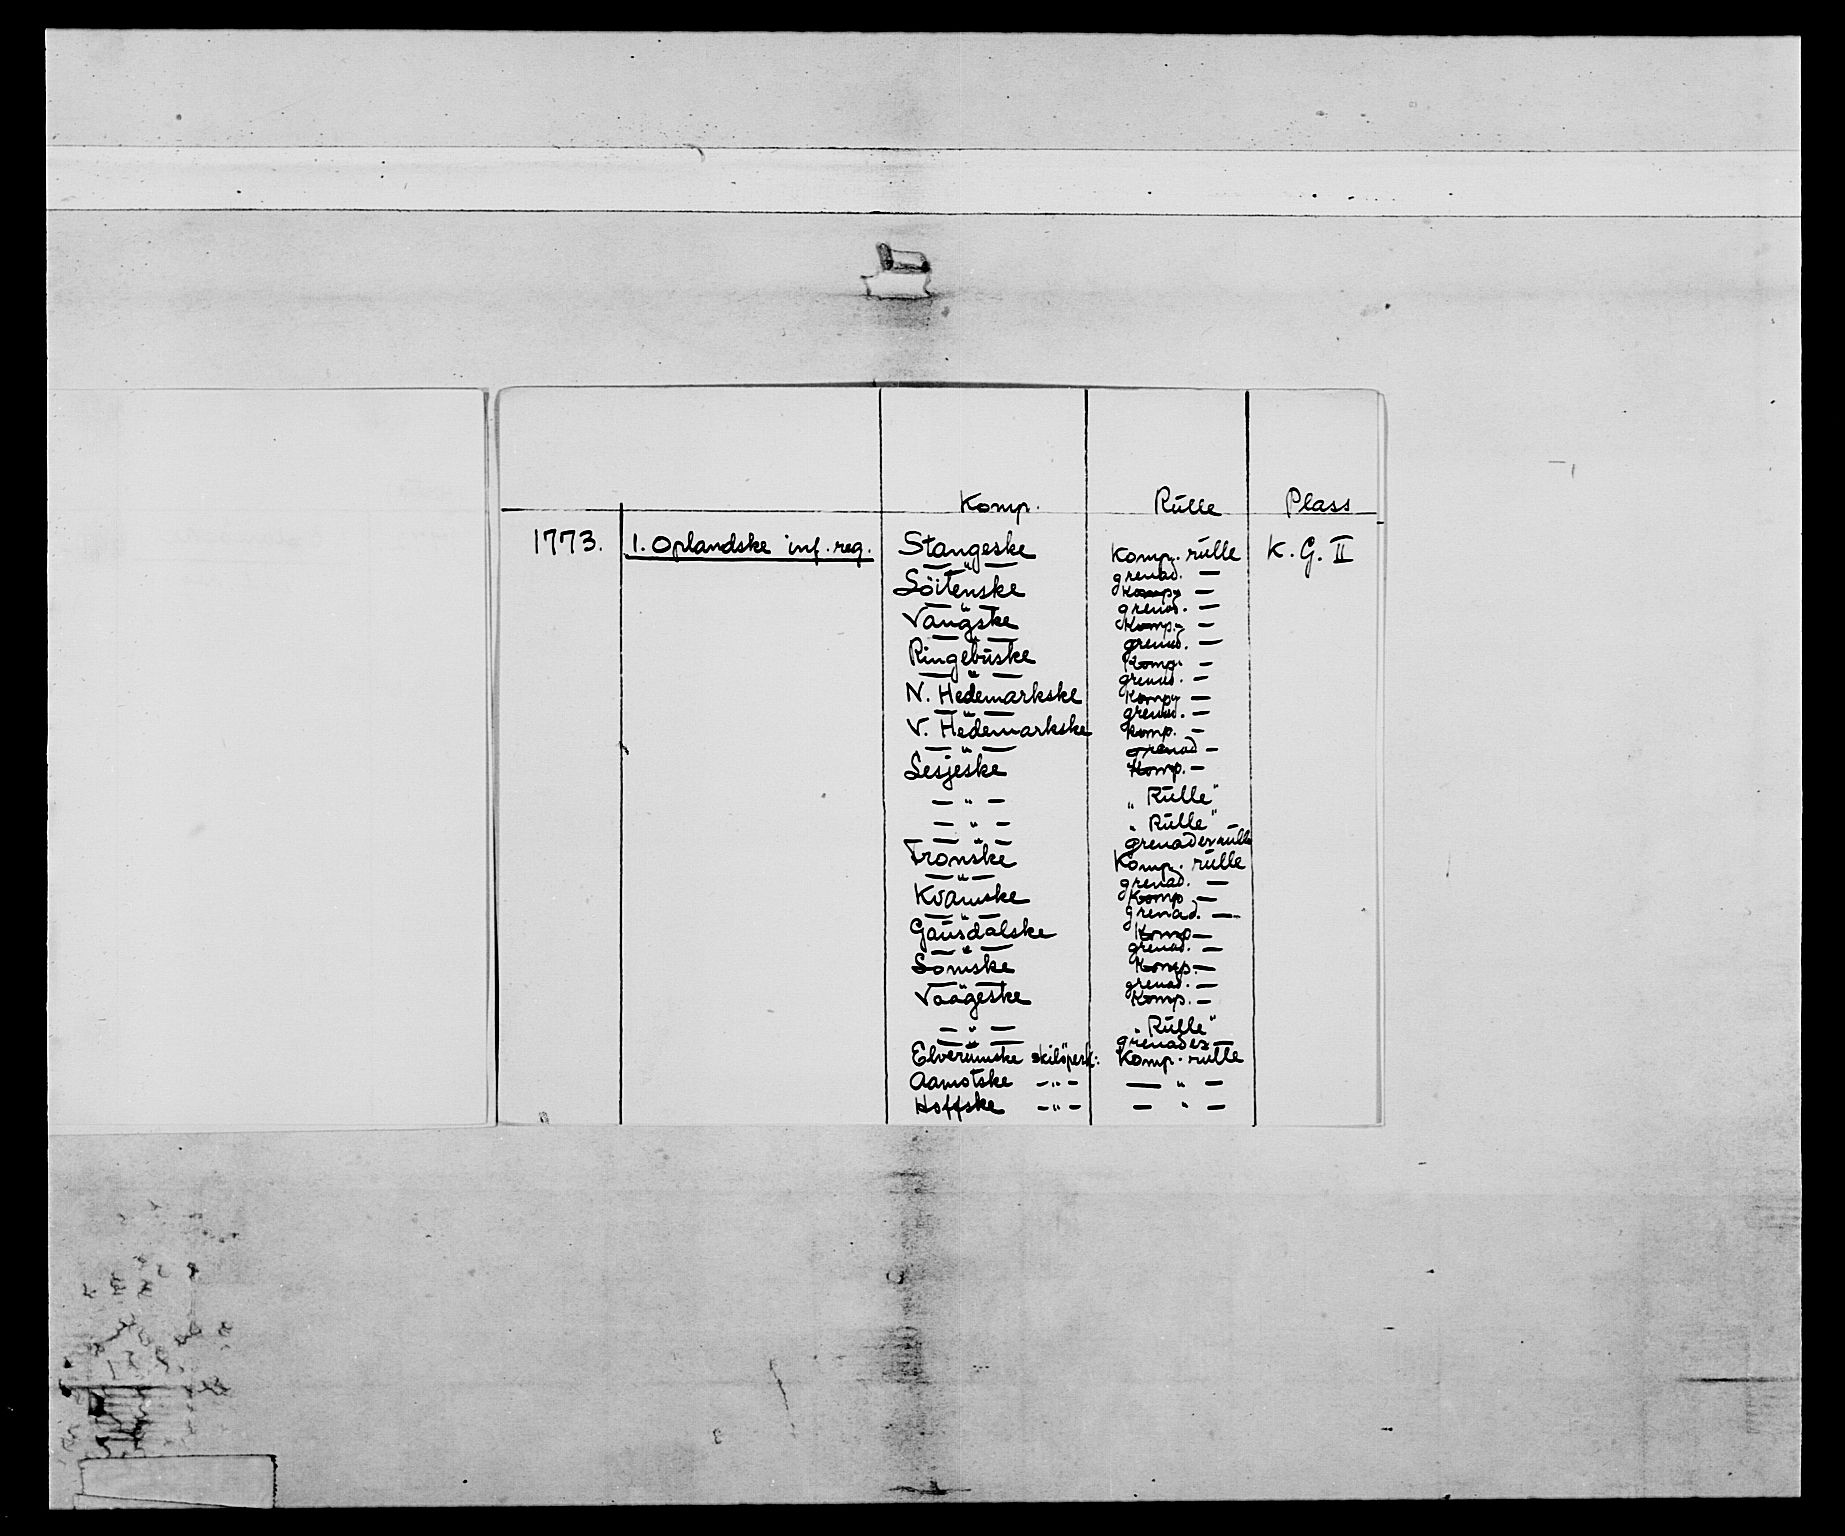 Komp. Rulle Plass
1773. 1. Oplandske inf. reg. Stangeske Komp. rulle K. G. II
— " — grenad. —
Löitenske Komp. —
— " — grenad. —
Vangske Komp. —
— " — grenad. —
Ringebuske Komp. —
— " — grenad. —
N. Hedemarkske Komp. —
— " — grenad. —
V. Hedemarkske Komp. —
— " — grenad —
Lesjeske Komp. —
— " — "Rulle"
— " — "Rulle"
— " — grenaderrulle
Fronske Komp. rulle
— " — grenad. —
Kvamske Komp —
— " — grenad. —
Gausdalske Komp —
— " — grenad. —
Lomske Komp. —
— " — grenad. —
Vaageske Komp. —
— " — "Rulle"
— " — grenader —
Elverumske skilöperk: Komp. rulle
Aamotske — " — — " —
Hoffske — " — — " —